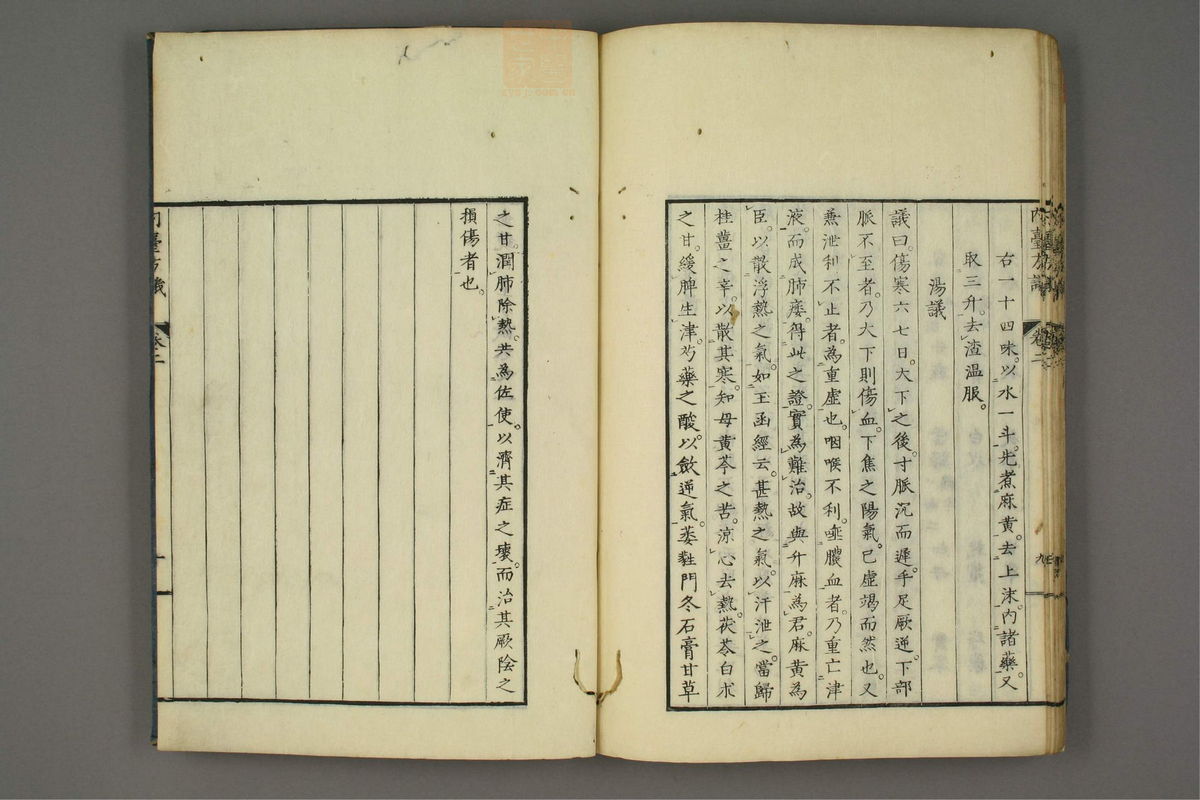 內臺方議
卷二
九
右一十四味以水一斗先煮麻黃去上沫內諸藥又
取三升去渣溫服
湯議
議曰傷寒六七日大下之後寸脈沉而遲手足厥逆下部
脈不至者乃大下則傷血下焦之陽氣已虛竭而然也又
兼泄利不止者為重虛也咽喉不利唾膿血者乃重亡津
液而成肺痿得此之證實為難治故與升麻為君麻黃為
臣以散浮熱之氣如玉函經云甚熱之氣以汗泄之當歸
桂薑之辛以散其寒知母黃芩之苦涼心去熱茯苓白朮
之甘緩脾生津芍藥之酸以斂逆氣萎蕤門冬石膏甘草
之甘潤肺除熱共為佐使以濟其症之壞而治其厥陰之
損傷者也
內臺方議
卷二